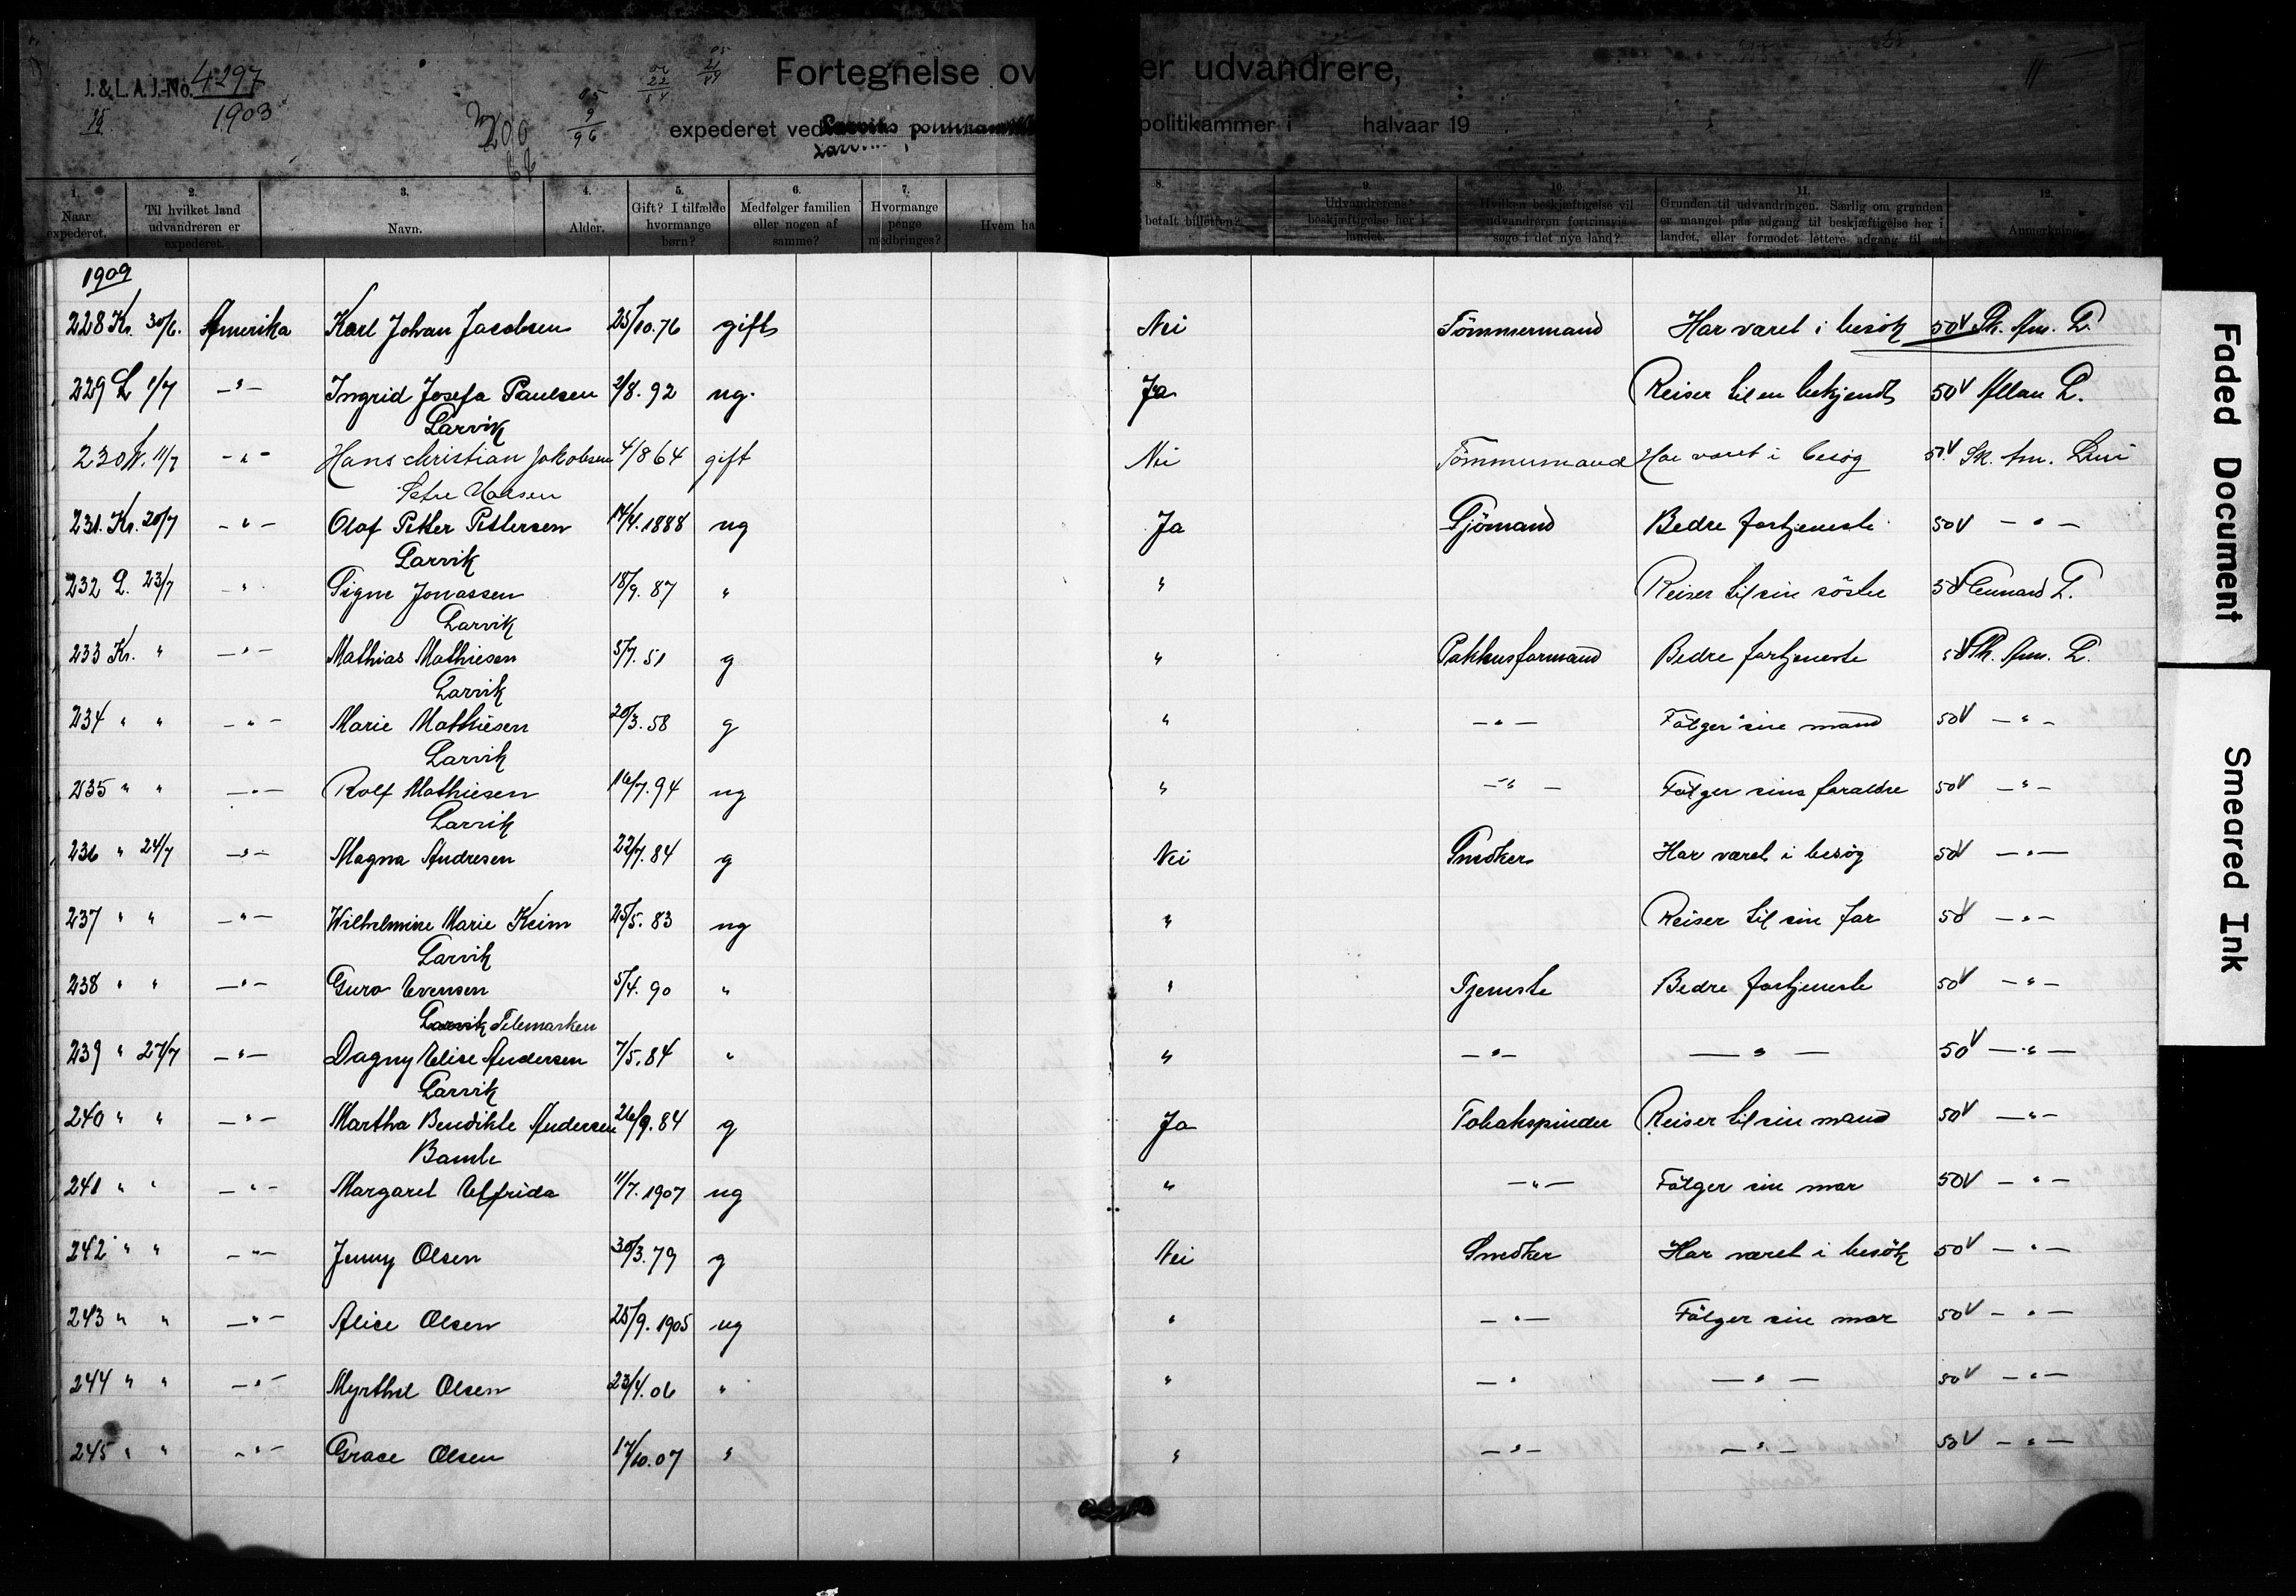 J. & L. A. J.-No. 4297
1903
Fortegnelse ov er udvandrere,
expederet ved politikammer i halvaar 19
1. 2. 3. 4. 5. 6. 7. 8. 9. 10. 11. 12.
Naar expederet.
Til hvilket land udvandreren er expederet.
Navn.
Alder.
Gift? I tilfælde hvormange børn?
Medfølger familien eller nogen af samme?
Hvormange penge medbringes?
Hvem ha betalt billetten?
Udvandrerens beskjæftigelse her i landet.
Hvilken beskjæftigelse vil udvandreren fortrinsvis søge i det nye land?
Grunden til udvandringen. Særlig om grunden er mangel paa adgang til beskjæftigelse her i landet, eller formodet lettere adgang til at
Anmerkning
1909
228 Kr. 30/6. Amerika Karl Johan Jacobsen 25/10.76 gift Nei Tömmermand Har været i besök 50 V Sk. Am. L.
229 L 1/7 – " – Ingrid Josefa Paulsen 2/8.92 ug. Ja Reiser til en bekjendt 50 V Allan L.
Larvik
230 11/7 – " – Hans christian Jakobsen 4/8 64 gift Nei Tömmermand Har været i besøg Sk. Am. Lini
231. Kr. 20/7 – " – Olaf Petter Pettersen 14/4.1888 ug Ja Sjömand Bedre fortjeneste 50 V – " –
Larvik
232 L. 23/7 – " Signe Jonassen 18/9.87 " " Reiser til sin söster 50 V Cunard L.
Larvik
233 Kr. " – " – Mathias Mathiesen 5/7.51 g " Pakhusformand Bedre fortjeneste Sk. Am. L.
Larvik
234 " " – " – Marie Mathiesen 20/3.58 g " – " – Fölger sin mand 50 V – " –
Larvik
235 " " – " – Rolf Mathiesen 16/7.94 ug " – " – Fölger sine foraldre 50 V – " –
Larvik
236 " 24/7 – " – Magna Andresen 22/7.84 g Nei Snedker Har været i besög 50 V – " –
237 " " – " – Wilhelmine Marie Keim 25/5.83 ug " Reiser til sin far 50 V – " –
Larvik
238 " " – " – Guro Evensen 5/4.90 " " Tjeneste Bedre fortjeneste 50 V – " –
Larvik Telemarken
239 " 27/7 – " – Dagny Elise Andersen 7/5.84 " " – " – – " – 50 V – " –
Larvik
240 " " – " – Martha Bendikte Andersen 26/9.84 g Ja Tobakspinder Reiser til sin mand 50 V – " –
Bamle
241 " " – " – Margaret Elfrida 11/7.1907 ug " – " – Fölger sin mor 50 V – " –
242 " " – " – Jenny Olsen 30/3.79 g Nei Snedker Har været i besök 50 V – " –
243 " " – " – Alice Olsen 25/9.1905 ug " – " – Fölger sin mor 50 V – " –
244 " " – " – Myrthel Olsen 23/4.06 " " – " – " – 50 V – " –
245 " " – " – Grace Olsen 17/10.07 " " – " – – " – 50 V – " –
Faded Document
Smeared Ink